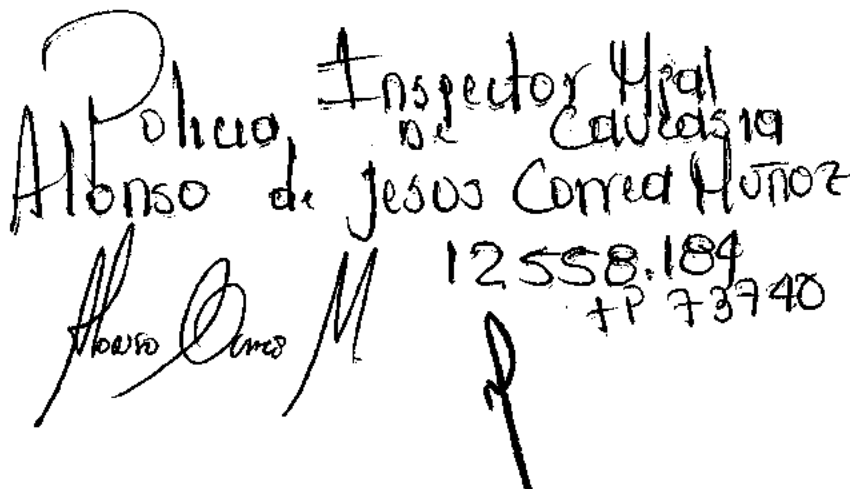 Inspector Mpal
Policia, De Caucasia
Alonso de Jesus Correa Muñoz
12558.184
TP 73740
Alonso Correa M